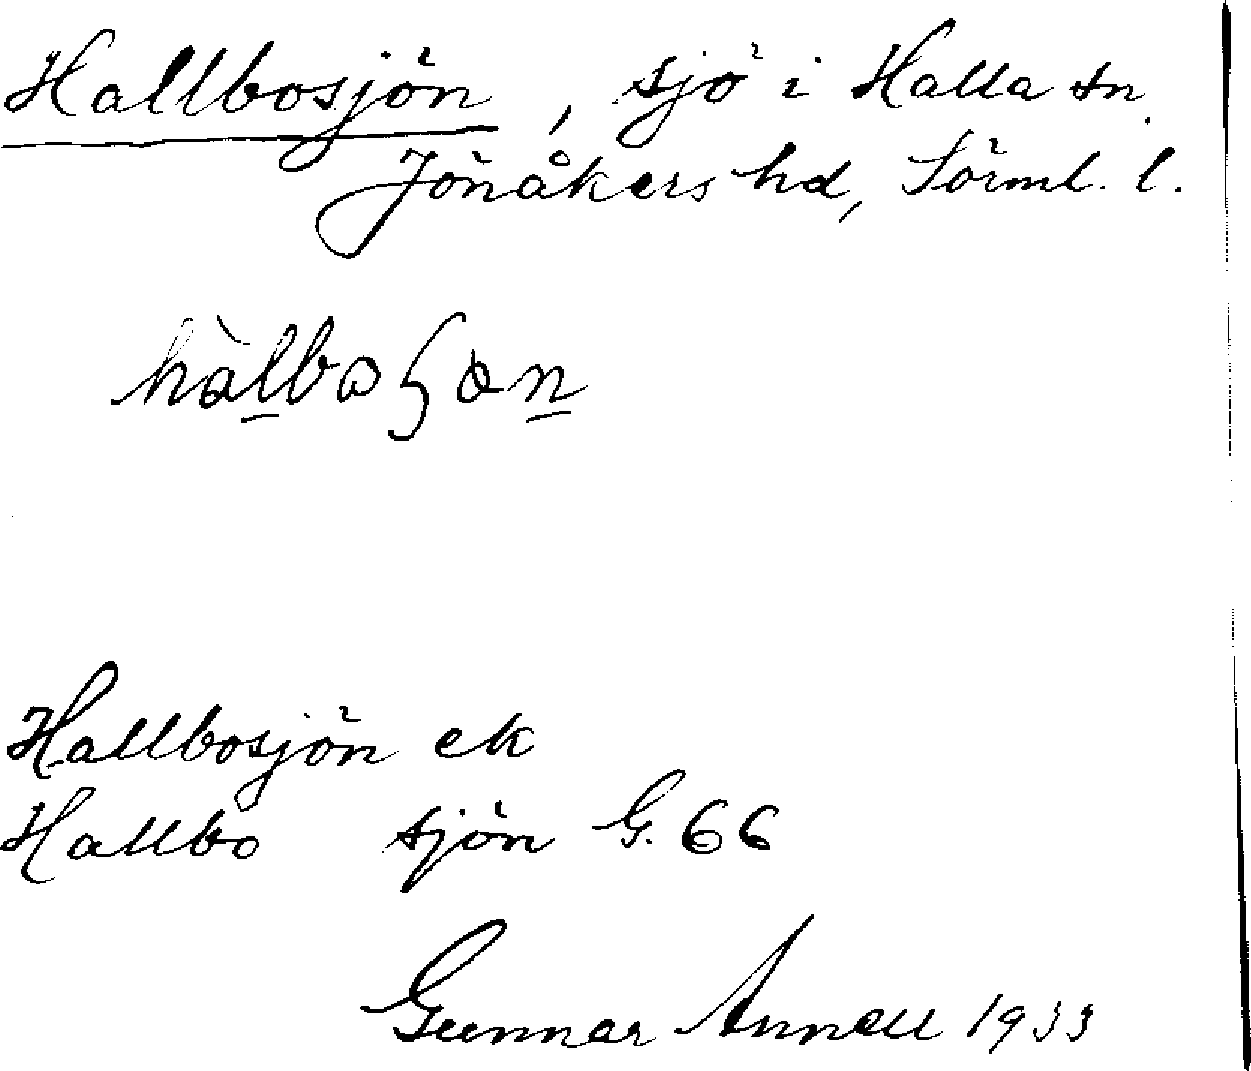 Hallbosjön, sjö i Halla sn.
Jönåkers hd, Sörml. l.
Hallbosjön ek
Hallbo sjön G. 66
Gunnar Annell 1933